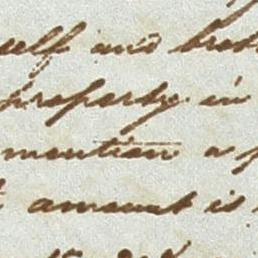 self and
property in
mention a
amount is